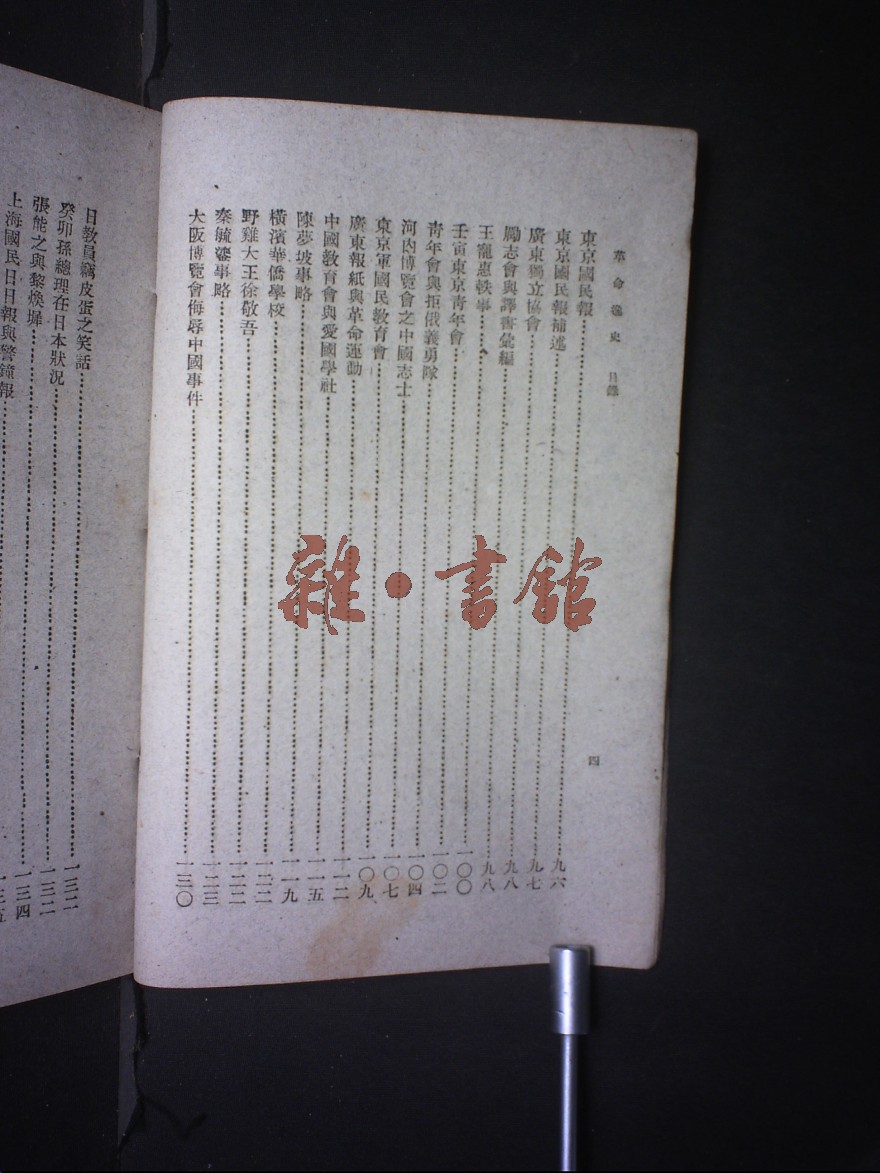 革命逸史 目錄 四
東京國民報……九六
東京國民報補述……九七
廣東獨立協會……九八
勵志會與譯書彙編……九八
王寵惠軼事……一〇〇
壬寅東京青年會……一〇二
青年會與拒俄義勇隊……一〇四
河內博覽會之中國志士……一〇七
東京軍國民教育會……一〇九
廣東報紙與革命運動……一一二
中國教育會與愛國學社……一一五
陳夢坡事略……一一九
橫濱華僑學校……一二二
野雞大王徐敬吾……一二二
秦毓鎏事略……一二三
大阪博覽會侮辱中國事件……一三〇
日教員竊皮蛋之笑話……一三二
癸卯孫總理在日本狀況……一三二
張能之與黎煥墀……一三四
上海國民日日報與警鐘報……一三五
雜·書館